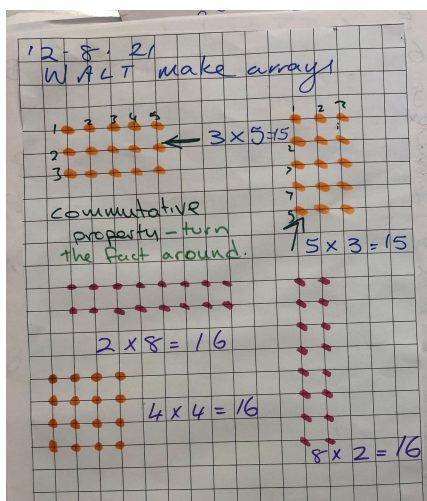 12.8.21
WALT make arrays
1 2 3 4 5
2
3
3 x 5=15
1 2 3
2
5
5 x 3 = 15
commutative
property - turn
the fact around.
2 x 8 = 16
4 x 4 = 16
8 x 2 = 16